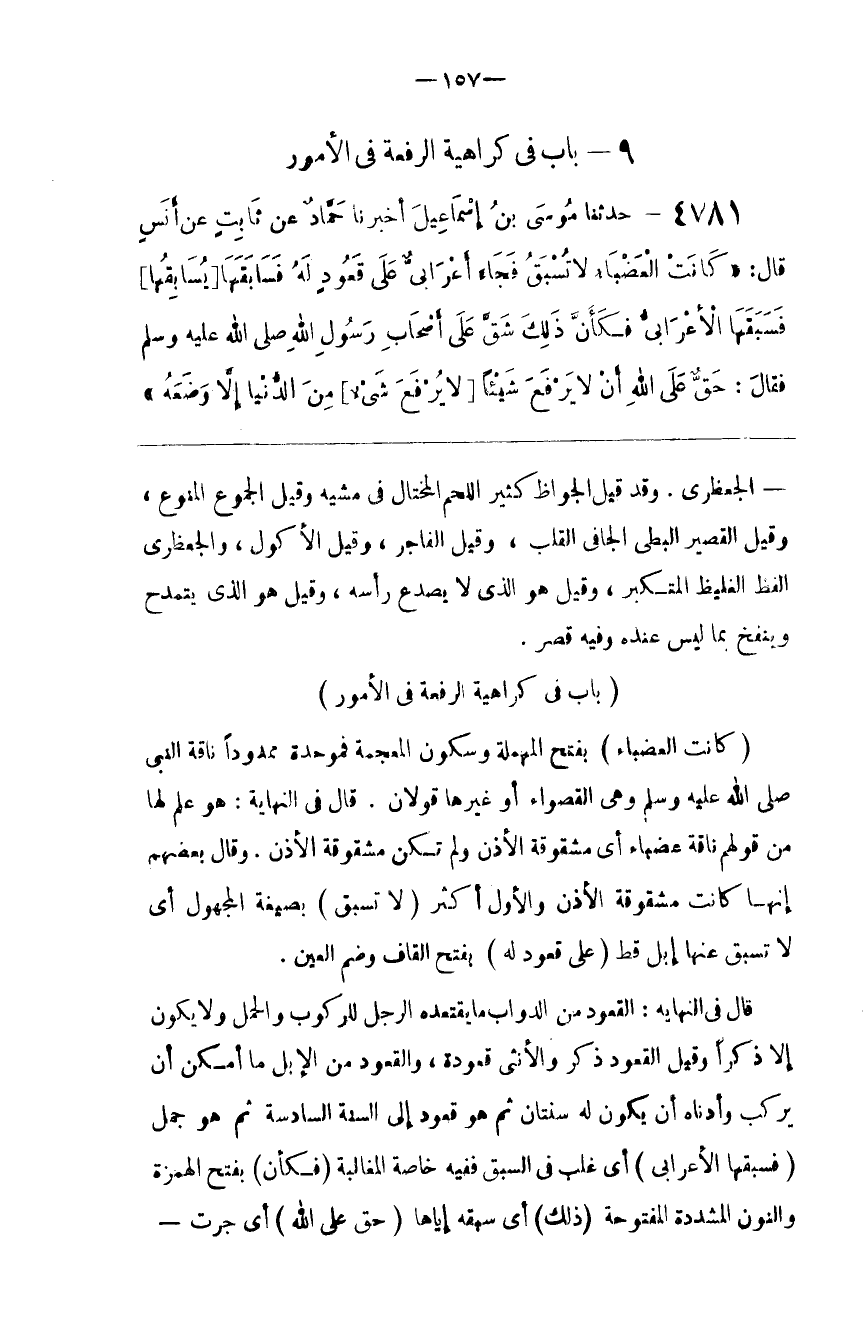 —١٥٧—
٩ — باب فى كراهية الرفعة فى الأمور
٤٧٨١ — حدثنا مُوسَى بنُ إِسْمَاعِيلَ أخبرنا حَمَّادٌ عن ثَابِتٍ عن أَنَسٍ
قال: « كَانَتْ الْعَضْبَاءِ لاتُسْبَقُ فَجَاءَ أعْرَابىٌّ عَلَى قَعُودٍ لَهُ فَسَابَقَهَا [يُسَابِقُها]
فَسَبَقَهَا الْأعْرَابىُّ فـكَأَنَّ ذَلِكَ شَقَّ عَلَى أصْحَابِ رَسُولِ اللهِ صلى الله عليه وسلم
فقالَ : حَقٌّ عَلَى اللهِ أنْ لايَرْفَعَ شَيْئاً [ لايُرْفَعَ شَىْءٌ] مِنَ الدُّنْيا إلَّا وَضَعَهُ »
— الجعظرى . وقد قيل الجواظ كثير اللحم المختال فى مشيه وقيل الجموع المنوع ،
وقيل القصير البطى الجافى القلب ، وقيل الفاجر ، وقيل الأكول ، والجعظرى
الفظ الغليظ المتـكبر ، وقيل هو الذى لا يصدع رأسه ، وقيل هو الذى يتمدح
وينفخ بما ليس عنده وفيه قصر .
( باب فى كراهية الرفعة فى الأمور )
( كانت العضباء ) بفتح المهملة وسكون المعجمة فموحدة ممدوداً ناقة النبى
صلى الله عليه وسلم وهى القصواء أو غيرها قولان . قال فى النهاية : هو علم لها
من قولهم ناقة عضباء أى مشقوقة الأذن ولم تـكن مشقوقة الأذن . وقال بعضهم
إنهـا كانت مشقوقة الأذن والأول أكثر ( لا تسبق ) بصيغة المجهول أى
لا تسبق عنها إبل قط ( على قعود له ) بفتح القاف وضم العين .
قال فى النهايه : القعود من الدواب مايقتعده الرجل للركوب والحمل ولايكون
إلا ذكراً وقيل القعود ذكر والأنثى قعودة ، والقعود من الإبل ما أمـكن أن
يركب وأدناه أن يكون له سنتان ثم هو قعود إلى السنة السادسة ثم هو جمل
( فسبقها الأعرابى ) أى غلب فى السبق ففيه خاصة المغالبة (فـكأن) بفتح الهمزة
والنون المشددة المفتوحة (ذلك) أى سبقه إياها ( حق على الله ) أى جرت —